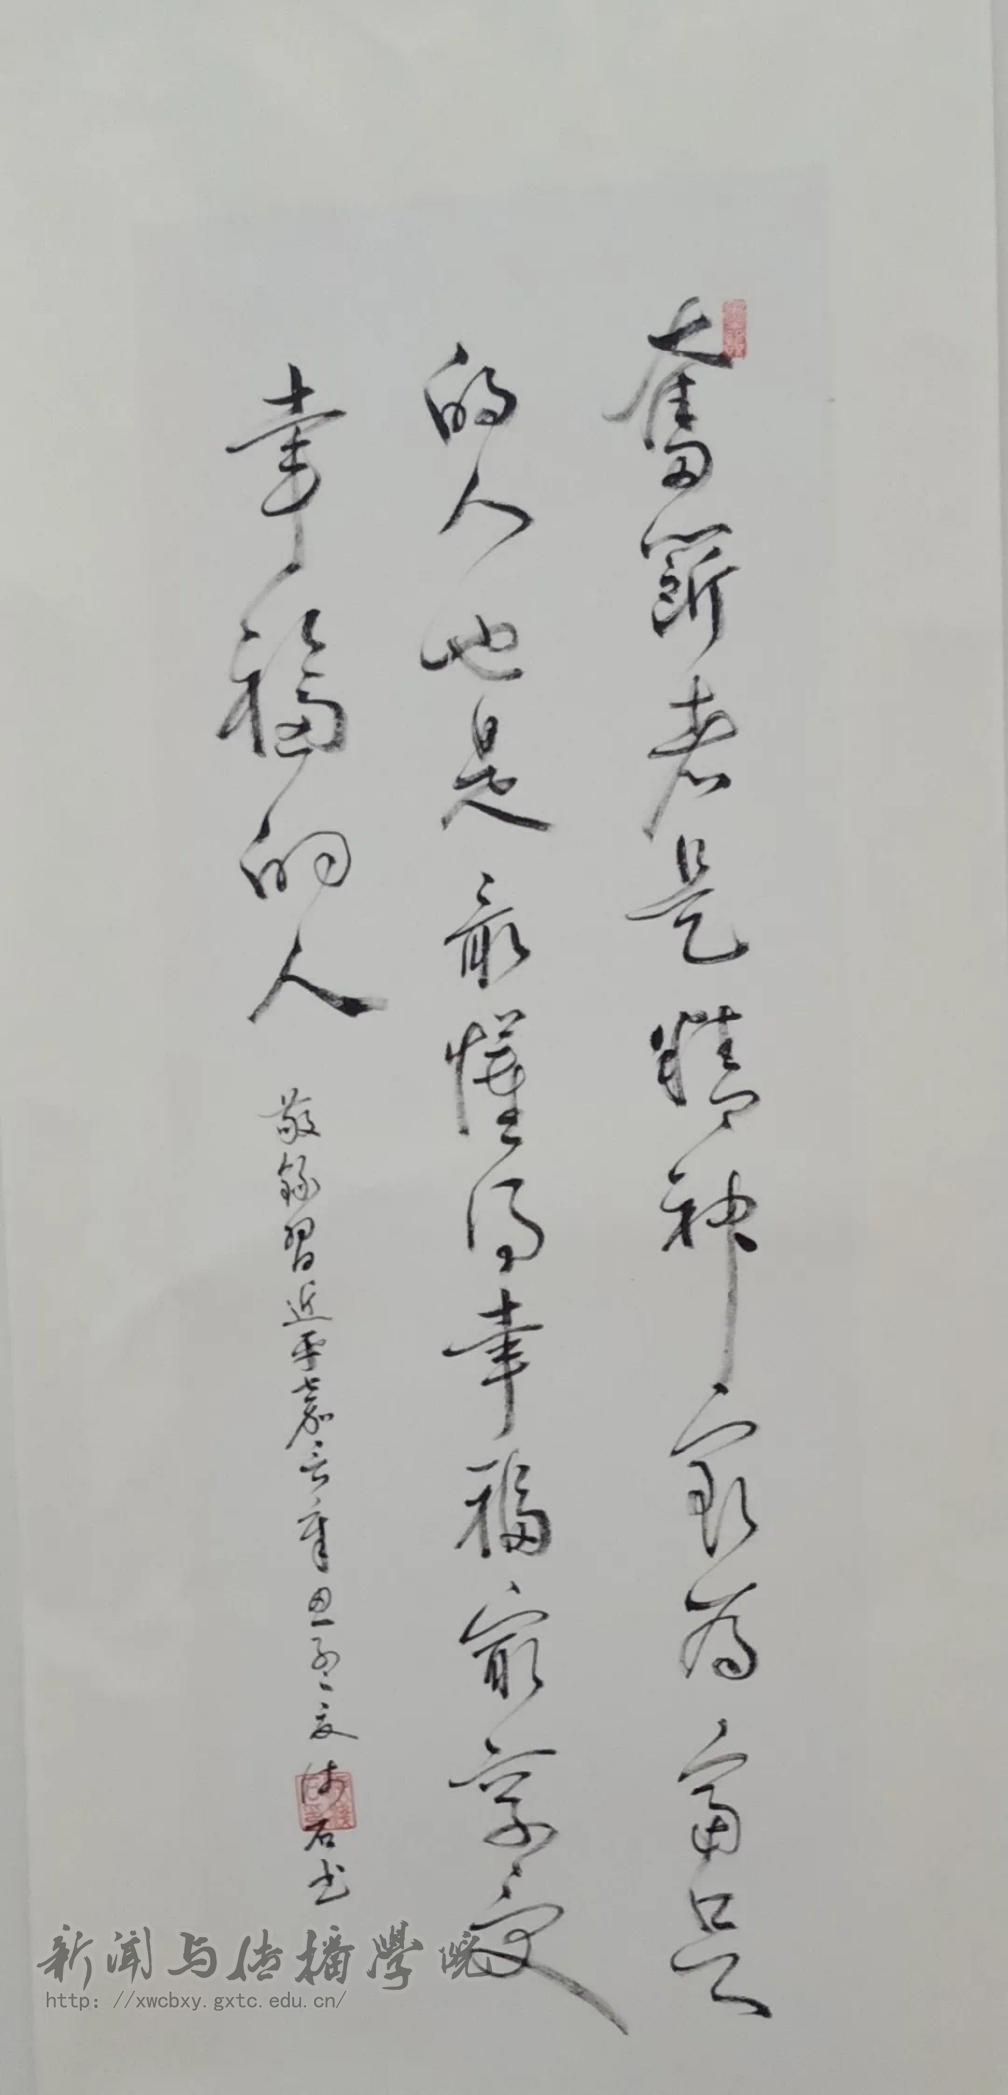 奮鬭者是精神最為富足
的人也是最懂得幸福最享受
幸福的人
敬錄習近平嘉言辛丑孟夏石书
新闻与传播學院
http: //xwcbxy.gxtc.edu.cn/